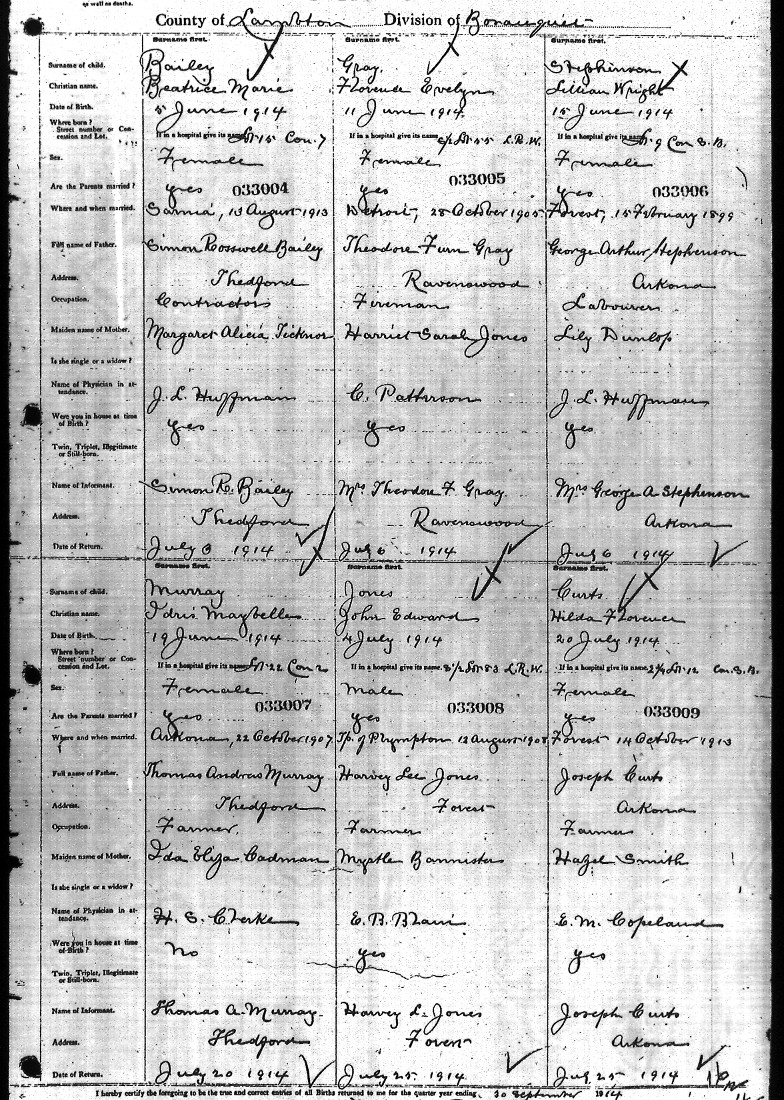 as well as deaths.
County of Lambton Division of Bosanquet
Surname first. Surname first. Surname first.
Surname of child. Bailey Gray Stephenson
Christian name. Beatrice Marie Florence Evelyn Lillian Wright
Date of Birth. 5 June 1914 11 June 1914 15 June 1914
Where born?
Street number or Con-
cession and Lot. If in a hospital give its name Lot 15 Con. 7 If in a hospital give its name E½ Lot 55 L.R.W. If in a hospital give its name Lot 9 Con S.B.
Sex. Female Female Female
Are the Parents married? yes 033004 yes 033005 yes 033006
Where and when married. Sarnia, 13 August 1913 Detroit, 28 October 1905 Forest, 15 February 1899
Full name of Father. Simon Rosswell Bailey Theodore Gray George Arthur Stephenson
Address. Thedford Ravenswood Arkona
Occupation. Contractors Fireman Labourer
Maiden name of Mother. Margaret Alicia Ticknor Harriet Sarah Jones Lily Dunlop
Is she single or a widow?
Name of Physician in at-
tendance. J. L. Huffman C. Patterson J. L. Huffman
Were you in house at time
of Birth? yes yes yes
Twin, Triplet, Illegitimate
or Still-born.
Name of Informant. Simon R. Bailey Mrs Theodore F Gray Mrs George A Stephenson
Address. Thedford Ravenswood Arkona
Date of Return. July 1914 July 6 1914 July 6 1914
Surname first. Surname first. Surname first.
Surname of child. Murray Jones Curts
Christian name. Idris Maybelle John Edward Hilda Florence
Date of Birth. 19 June 1914 4 July 1914 20 July 1914
Where born?
Street number or Con-
cession and Lot. If in a hospital give its name Lot 22 Con 2 If in a hospital give its name. Lot 53 L.R.W. If in a hospital give its name Lot 12 Con. S.B.
Sex. Female Male Female
Are the Parents married? yes 033007 yes 033008 yes 033009
Where and when married. Arkona, 22 October 1907 Tp. of Plympton 12 August 1908 Forest 14 October 1913
Full name of Father. Thomas Andrew Murray Harvey Lee Jones Joseph Curts
Address. Thedford Forest Arkona
Occupation. Farmer Farmer Farmer
Maiden name of Mother. Ida Eliza Cadman Myrtle Bannister Hazel Smith
Is she single or a widow?
Name of Physician in at-
tendance. H. S. Clerke E. B. Blain E. M. Copeland
Were you in house at time
of Birth? No yes yes
Twin, Triplet, Illegitimate
or Still-born.
Name of Informant. Thomas A. Murray Harvey L. Jones Joseph Curts
Address. Thedford Forest Arkona
Date of Return. July 20 1914 July 25 1914 July 25 1914
I hereby certify the foregoing to be the true and correct entries of all Births returned to me for the quarter year ending 30 September 1914